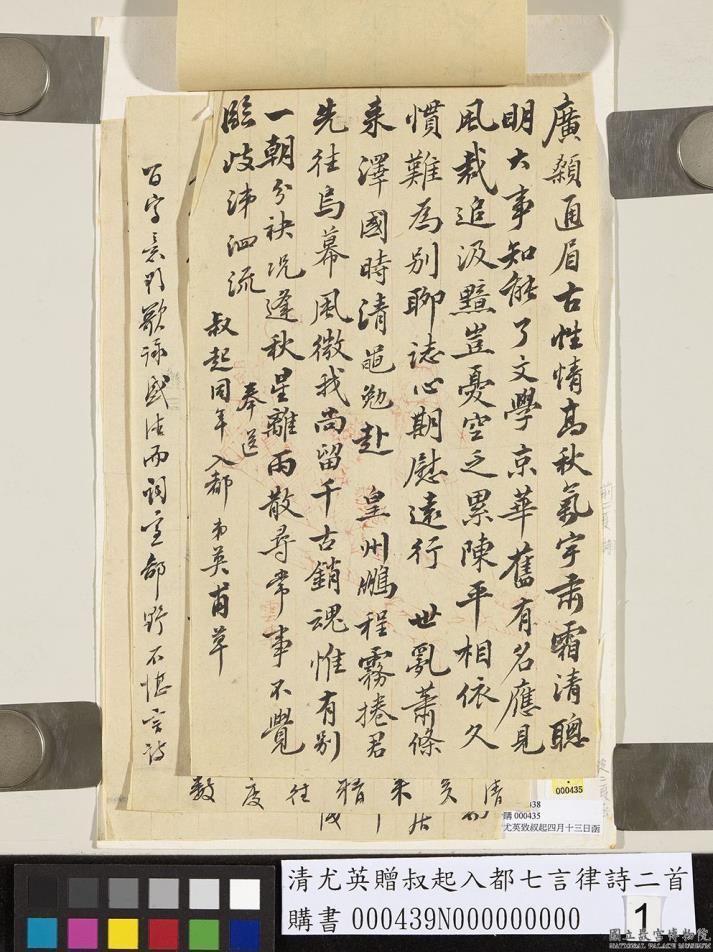 廣顙通眉古性情高秋氣宇肅霜清聰
明大事知能了文學京華舊有名應見
風裁追汲黯豈憂空乏累陳平相依久
慣難為別聊誌心期慰遠行　世亂蕭條
來澤國時清黽勉赴　皇州鵬程霧捲君
先往烏幕風微我尚留千古銷魂惟有別
一朝分袂況逢秋星離雨散尋常事不覺
臨歧涕泗流
奉送
叔起同年入都　弟英甫草
000435
購000435
尤英致叔起四月十三日函
清尤英贈叔起入都七言律詩二首
購書000439N000000000
1
國立故宮博物院
NATIONAL PALACE MUSEUM